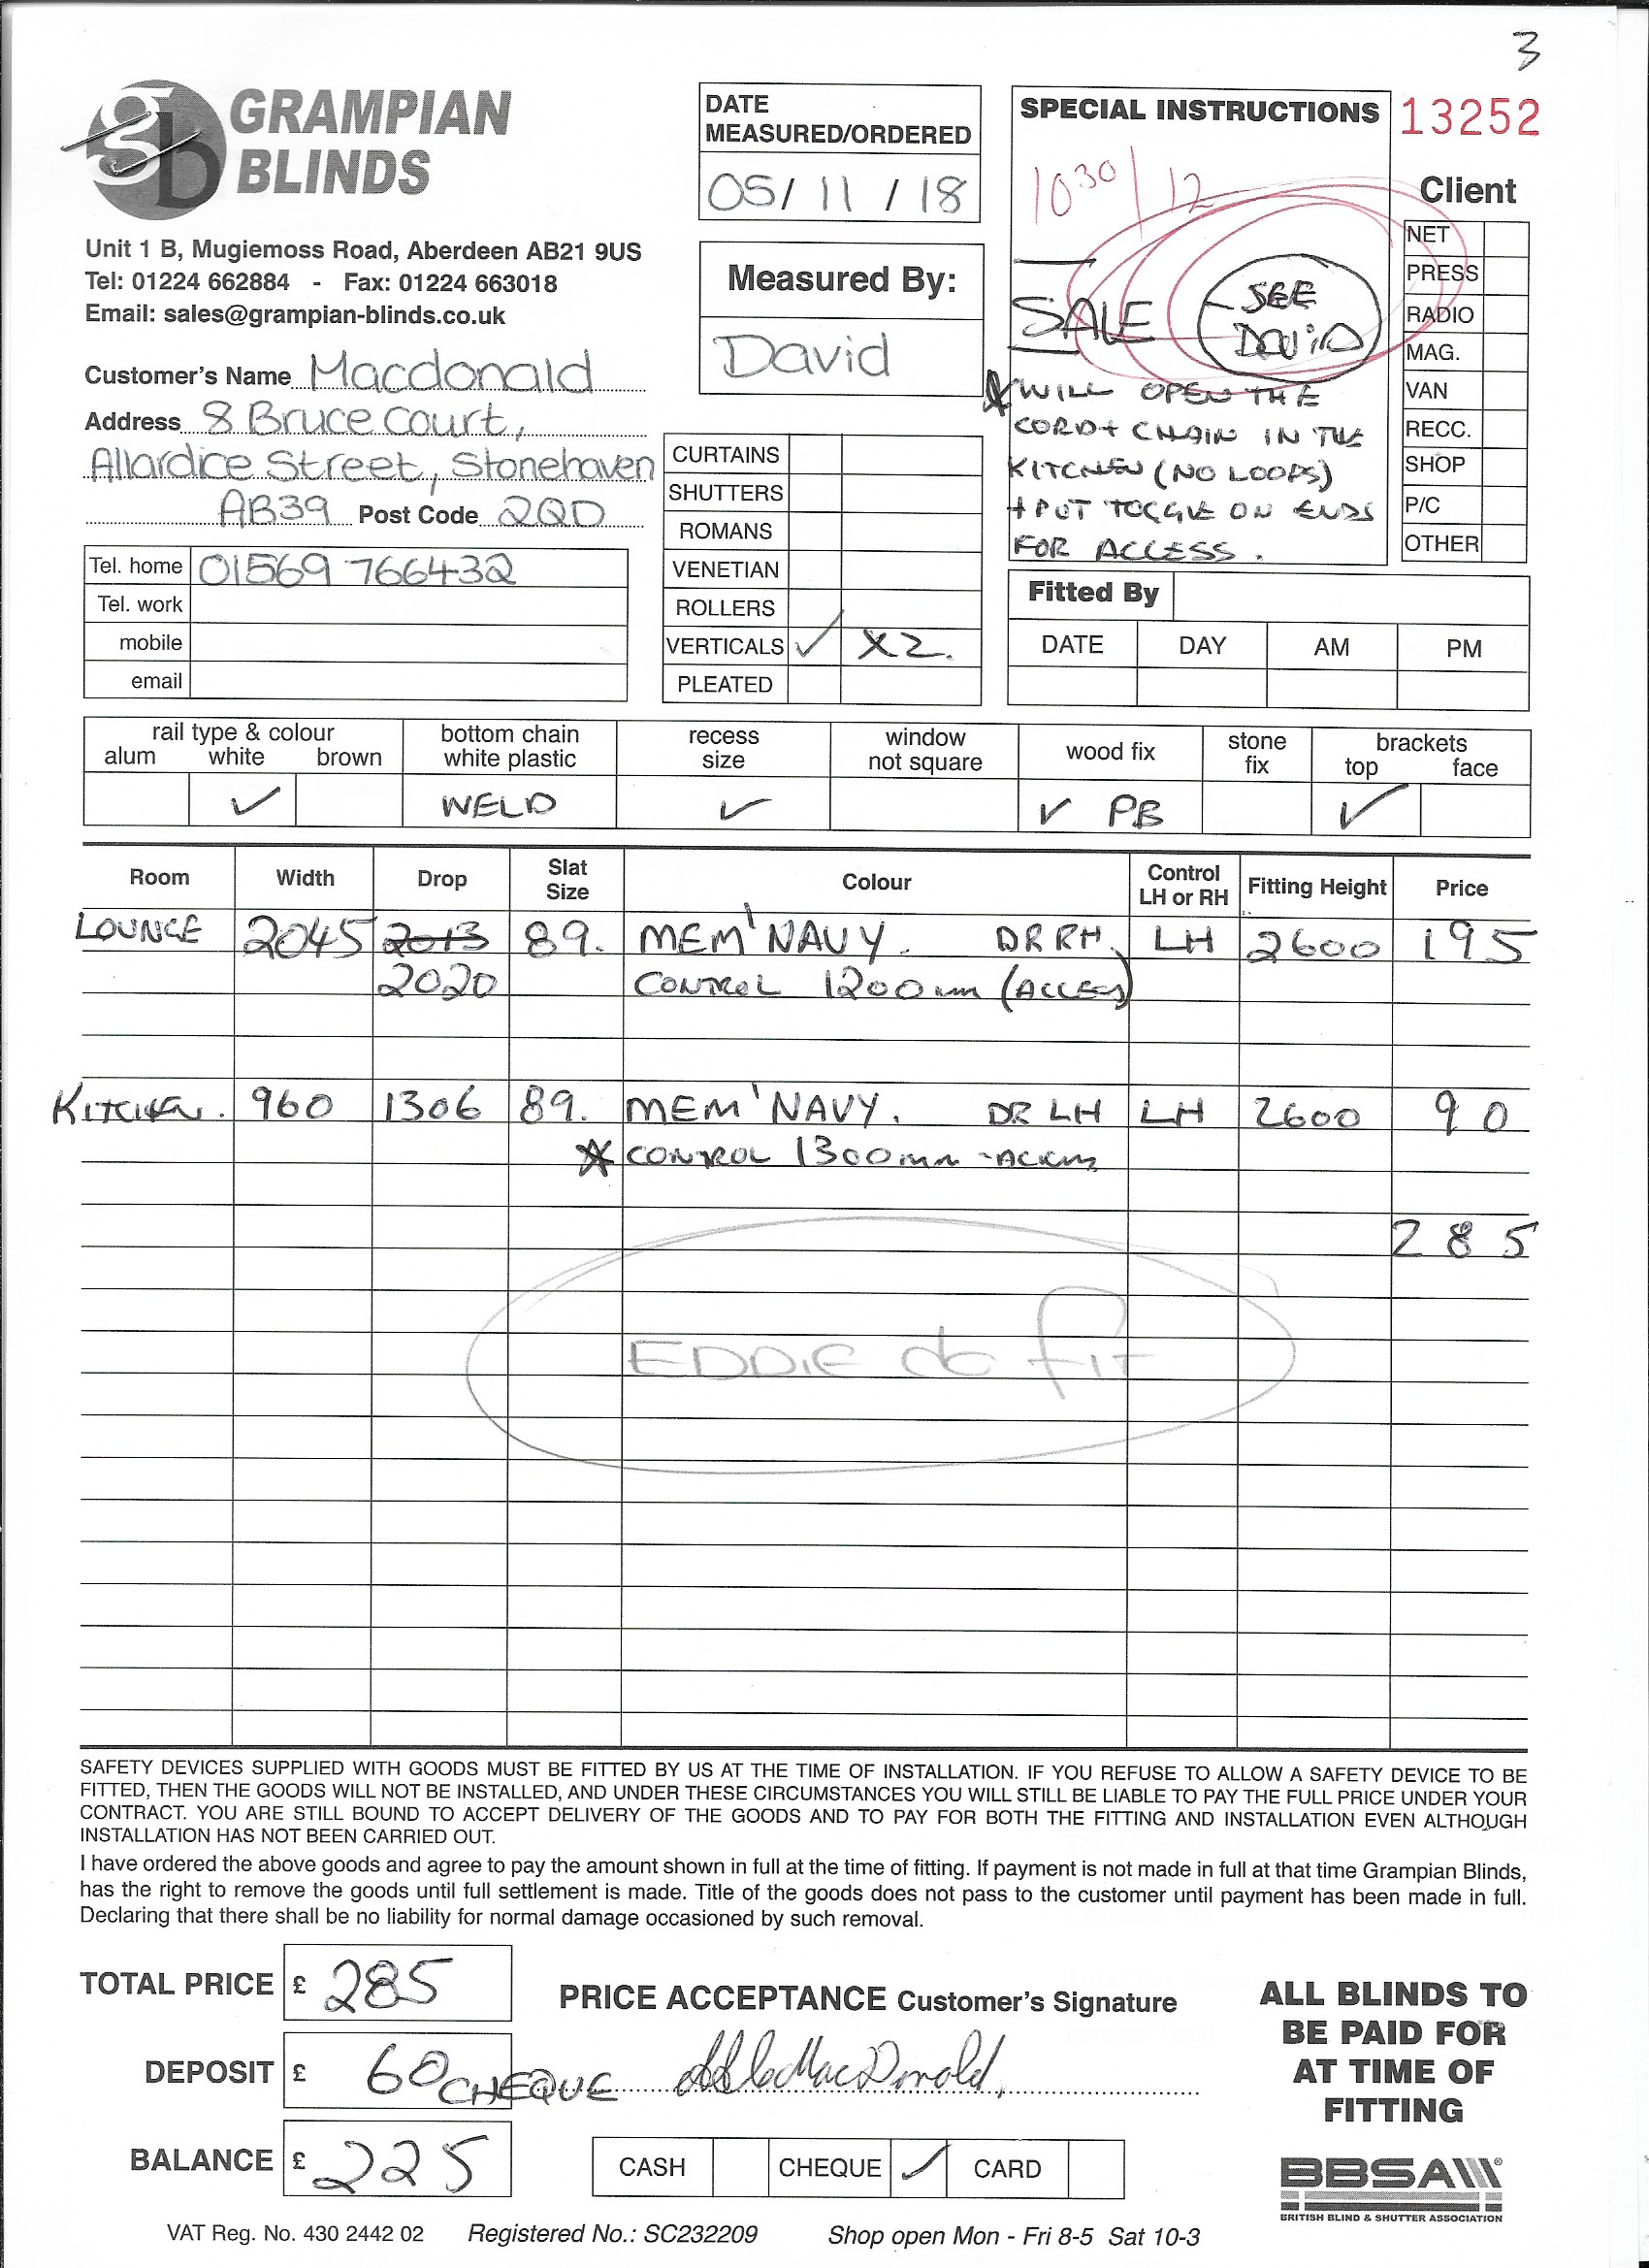 3
GRAMPIAN
BLINDS
gb
Unit 1 B, Mugiemoss Road, Aberdeen AB21 9US
Tel: 01224 662884 - Fax: 01224 663018
Email: sales@grampian-blinds.co.uk
Customer's Name Macdonald
Address 8 Bruce Court,
Allardice Street, Stonehaven
AB39 Post Code 2QD
Tel. home 01569 766432
Tel. work
mobile
email
DATE
MEASURED/ORDERED
05/11/18
Measured By:
David
CURTAINS
SHUTTERS
ROMANS
VENETIAN
ROLLERS
VERTICALS ✓ X2.
PLEATED
SPECIAL INSTRUCTIONS
10 30 / 12
SALE
SEE
DAVID
WILL OPEN THE
CORD + CHAIN IN THE
KITCHEN (NO LOOPS)
+ PUT TOGGLE ON ENDS
FOR ACCESS.
13252
Client
NET
PRESS
RADIO
MAG.
VAN
RECC.
SHOP
P/C
OTHER
Fitted By
DATE DAY AM PM
rail type & colour
alum white brown
bottom chain
white plastic
recess
size
window
not square
wood fix
stone
fix
brackets
top face
✓ WELD ✓ ✓ PB ✓
Room Width Drop Slat Size Colour Control LH or RH Fitting Height Price
LOUNGE 2045 2013 89. MEM' NAVY. DR RH. LH 2600 195
2020 CONTROL 1200mm (ACCESS)
KITCHEN. 960 1306 89. MEM' NAVY. DR LH LH 2600 90
CONTROL 1300mm
285
EDDIE do fit
SAFETY DEVICES SUPPLIED WITH GOODS MUST BE FITTED BY US AT THE TIME OF INSTALLATION. IF YOU REFUSE TO ALLOW A SAFETY DEVICE TO BE
FITTED, THEN THE GOODS WILL NOT BE INSTALLED, AND UNDER THESE CIRCUMSTANCES YOU WILL STILL BE LIABLE TO PAY THE FULL PRICE UNDER YOUR
CONTRACT. YOU ARE STILL BOUND TO ACCEPT DELIVERY OF THE GOODS AND TO PAY FOR BOTH THE FITTING AND INSTALLATION EVEN ALTHOUGH
INSTALLATION HAS NOT BEEN CARRIED OUT.
I have ordered the above goods and agree to pay the amount shown in full at the time of fitting. If payment is not made in full at that time Grampian Blinds,
has the right to remove the goods until full settlement is made. Title of the goods does not pass to the customer until payment has been made in full.
Declaring that there shall be no liability for normal damage occasioned by such removal.
TOTAL PRICE £ 285
DEPOSIT £ 60 CHEQUE
BALANCE £ 225
PRICE ACCEPTANCE Customer's Signature
MacDonald
CASH CHEQUE ✓ CARD
ALL BLINDS TO
BE PAID FOR
AT TIME OF
FITTING
BBSA
BRITISH BLIND & SHUTTER ASSOCIATION
VAT Reg. No. 430 2442 02 Registered No.: SC232209 Shop open Mon - Fri 8-5 Sat 10-3